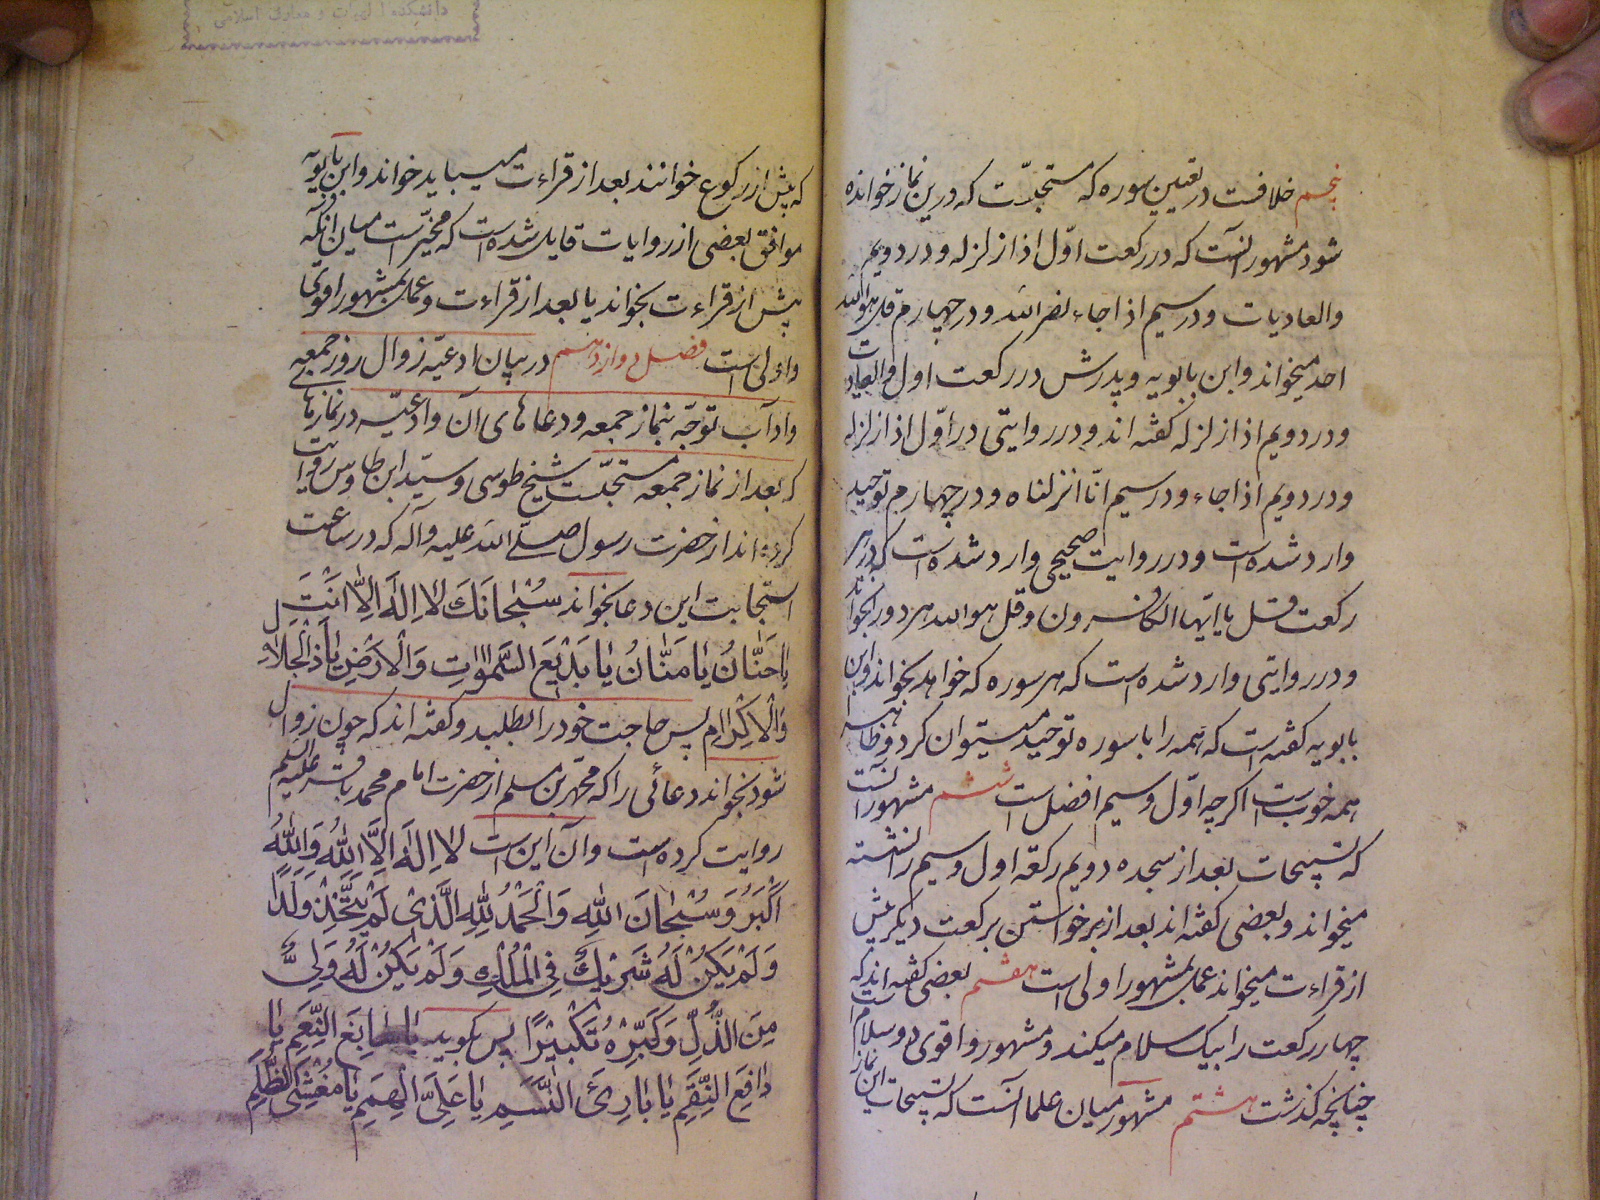 پنجم خلافست در تعیین سوره که مستحبّست که درین نماز خوانده
شود مشهور آنست که در رکعت اوّل اذا زلزله و در دویم
والعادیات و در سیم اذا جاء نصر الله و در چهارم قل هو الله
احد میخواند و ابن بابویه و پدرش در رکعت اول والعادیات
و در دویم اذا زلزله گفته اند و در روایتی در اوّل اذا زلزله
و در دویم اذا جاء و در سیم انّا انزلناه و در چهارم توحید
وارد شده است و در روایت صحیحی وارد شده است که در هر
رکعت قل یا ایها الکافرون و قل هو الله هر دو را بخواند
و در روایتی وارد شده است که هر سوره که خواهد بخواند و ابن
بابویه گفته است که همه را با سوره توحید میتوان کرد و ظاهر
همه خوبست اگرچه اوّل و سیم افضل است ششم مشهور آنست
که تسبیحات بعد از سجده دویم رکعة اول و سیم را نشسته
میخواند و بعضی گفته اند بعد از برخواستن برکعت دیگر پیش
از قراءت میخواند عمل بمشهور اولی است هفتم بعضی گفته اند که
چهار رکعت را بیک سلام میکند و مشهور و اقوی دو سلام است
چنانچه گذشت هشتم مشهور میان علما آنست که تسبیحات این نماز
که پیش از رکوع خوانند بعد از قراءت میباید خواند و ابن بابویه
موافق بعضی از روایات قایل شده است که مخیّر است میان آنکه
پیش از قراءت بخواند یا بعد از قراءت و عمل بمشهور اقوی
و اولی است فصل دوازدهم در بیان ادعیّه زوال روز جمعه
و آداب توجّه بنماز جمعه و دعاهای آن و ادعیّه در نمازهایی
که بعد از نماز جمعه مستحبّست شیخ طوسی و سیّد ابن طاوس روایت
کرده اند از حضرت رسول صلّی الله علیه وآله که در ساعت
استجابت این دعا بخواند سُبْحانَكَ لا اِلٰهَ اِلّا اَنْتَ
یا حَنّانُ یا مَنّانُ یا بَدیْعَ السَّمٰواتِ وَالْاَرْضِ یا ذَا الْجَلالِ
وَالْاِکْرامِ پس حاجت خود را بطلبد و گفته اند که چون زوال
شود بخواند دعائی را که محمّد بن مسلم از حضرت امام محمد باقر علیه السلم
روایت کرده است و آن این است لا اِلٰهَ اِلَّا اللّٰهُ وَاللّٰهُ
اَکْبَرُ وَ سُبْحانَ اللّٰهِ وَ الْحَمْدُ لِلّٰهِ الَّذی لَمْ یَتَّخِذْ وَلَدًا
وَ لَمْ یَکُنْ لَهُ شَریْكٌ فِی الْمُلْكِ وَ لَمْ یَکُنْ لَهُ وَلِیٌّ
مِنَ الذُّلِّ وَ کَبِّرْهُ تَکْبیْرًا پس گوید یا سابِغَ النِّعَمِ یا
دافِعَ النِّقَمِ یا بارِئَ النَّسَمِ یا عَلِیَّ الْهِمَمِ یا مُغْشِیَ الظُّلَمِ